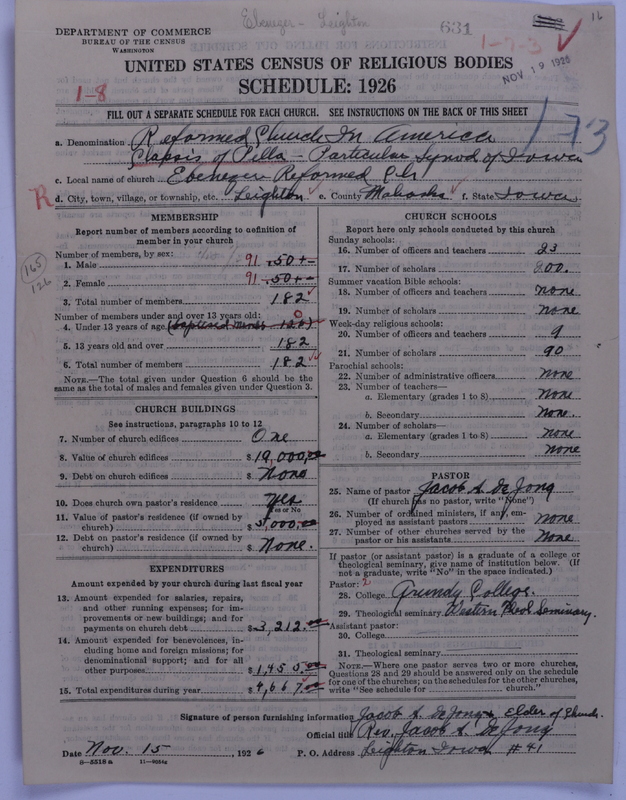 Ebenezer - Leighton
631
16
DEPARTMENT OF COMMERCE
BUREAU OF THE CENSUS
WASHINGTON
1-7-3
NOV 19 1926
UNITED STATES CENSUS OF RELIGIOUS BODIES
SCHEDULE: 1926
1-8
FILL OUT A SEPARATE SCHEDULE FOR EACH CHURCH. SEE INSTRUCTIONS ON THE BACK OF THIS SHEET
173
a. Denomination Reformed Church In America
Classis of Pella - Particular Synod of Iowa
c. Local name of church Ebenezer Reformed Ch
R
d. City, town, village, or township, etc. Leighton e. County Mahaska f. State Iowa
MEMBERSHIP
Report number of members according to definition of
member in your church
Number of members, by sex:
1. Male 91 50+-
2. Female 91 50+-
3. Total number of members 182
165
126
Number of members under and over 13 years old:
4. Under 13 years of age (baptized memb 126) 0
5. 13 years old and over 182
6. Total number of members 182
NOTE.—The total given under Question 6 should be the
same as the total of males and females given under Question 3.
CHURCH BUILDINGS
See instructions, paragraphs 10 to 12
7. Number of church edifices One
8. Value of church edifices $ 19,000.00
9. Debt on church edifices $ None
10. Does church own pastor's residence Yes
Yes or No
11. Value of pastor's residence (if owned by
church) $ 5,000.00
12. Debt on pastor's residence (if owned by
church) $ None.
EXPENDITURES
Amount expended by your church during last fiscal year
13. Amount expended for salaries, repairs,
and other running expenses; for im-
provements or new buildings; and for
payments on church debt $ 3,212.00
14. Amount expended for benevolences, in-
cluding home and foreign missions; for
denominational support; and for all
other purposes $ 1,455.00
15. Total expenditures during year $ 4,667.00
CHURCH SCHOOLS
Report here only schools conducted by this church
Sunday schools:
16. Number of officers and teachers 23
17. Number of scholars 200.
Summer vacation Bible schools:
18. Number of officers and teachers none
19. Number of scholars none
Week-day religious schools:
20. Number of officers and teachers 9
21. Number of scholars 90
Parochial schools:
22. Number of administrative officers none
23. Number of teachers—
a. Elementary (grades 1 to 8) none
b. Secondary none.
24. Number of scholars—
a. Elementary (grades 1 to 8) none
b. Secondary none
PASTOR
25. Name of pastor Jacob A. DeJong
(If church has no pastor, write "None")
26. Number of ordained ministers, if any, em-
ployed as assistant pastors none
27. Number of other churches served by the
pastor or his assistants None
If pastor (or assistant pastor) is a graduate of a college or
theological seminary, give name of institution below. (If
not a graduate, write "No" in the space indicated.)
Pastor: 2
28. College Grundy College.
29. Theological seminary Western Theol Seminary.
Assistant pastor:
30. College
31. Theological seminary
NOTE.—Where one pastor serves two or more churches,
Questions 28 and 29 should be answered only on the schedule
for one of the churches; on the schedules for the other churches,
write "See schedule for church."
Signature of person furnishing information Jacob A. DeJong Elder of Church.
Official title Rev. Jacob A. DeJong
Date Nov. 15, 1926 P. O. Address Leighton Iowa #41
8—5518 a 11—9064a